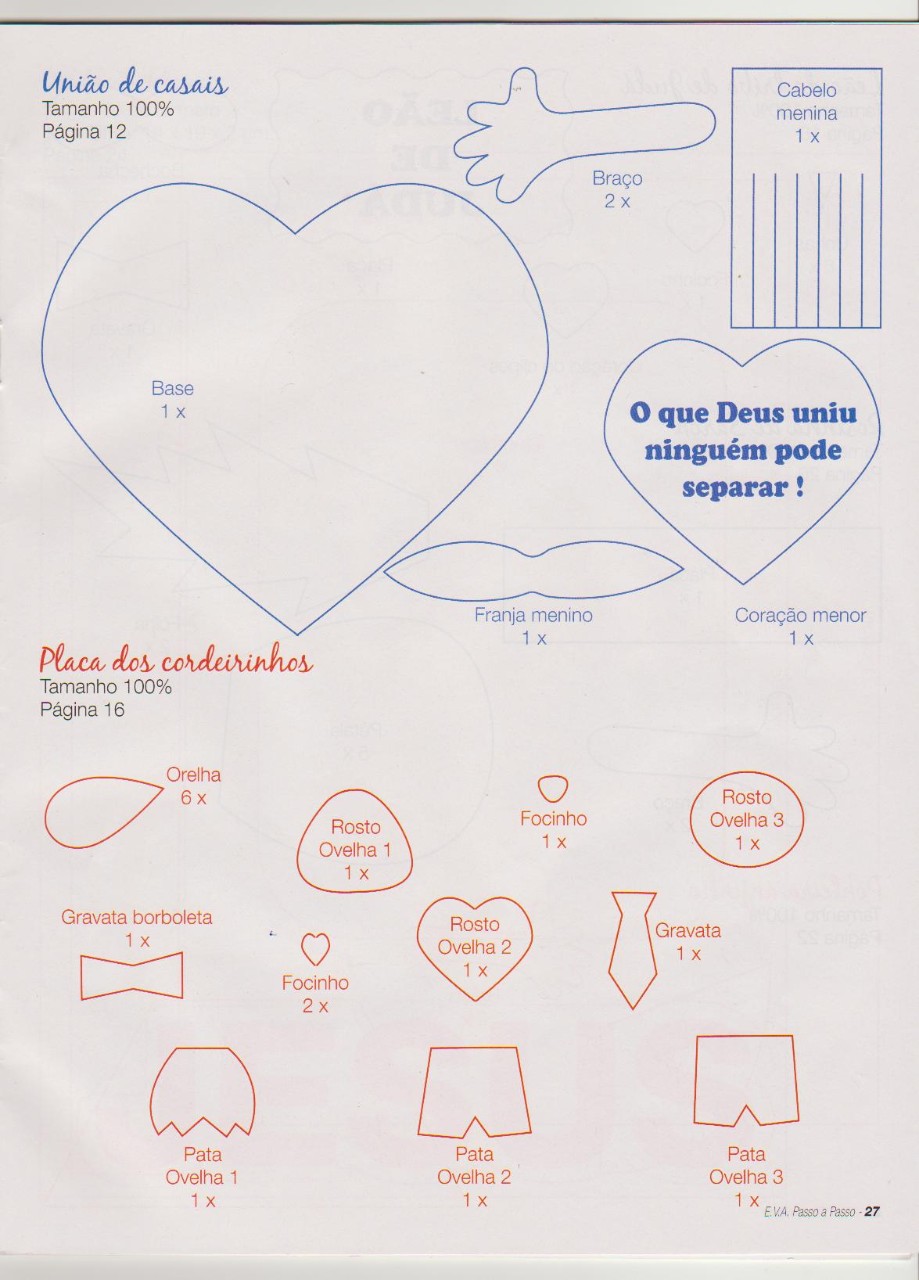 União de casais
Tamanho 100%
Página 12
Braço
2 x
Cabelo
menina
1 x
Base
1 x
O que Deus uniu
ninguém pode
separar !
Franja menino
1 x
Coração menor
1 x
Placa dos cordeirinhos
Tamanho 100%
Página 16
Orelha
6 x
Rosto
Ovelha 1
1 x
Focinho
1 x
Rosto
Ovelha 3
1 x
Gravata borboleta
1 x
Focinho
2 x
Rosto
Ovelha 2
1 x
Gravata
1 x
Pata
Ovelha 1
1 x
Pata
Ovelha 2
1 x
Pata
Ovelha 3
1 x
E.V.A. Passo a Passo - 27